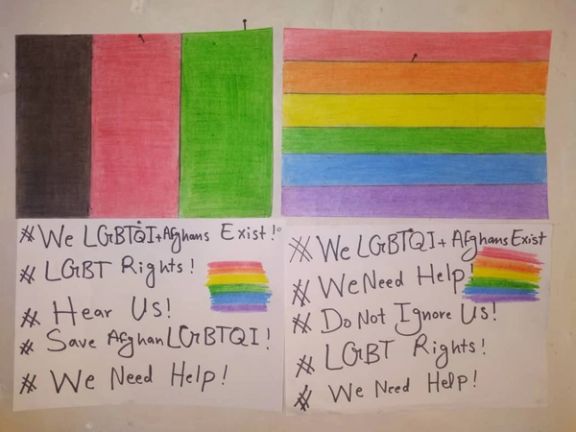 # We LGBTQI+ Afghans Exist!
# LGBT Rights!
# Hear Us!
# Save Afghan LGBTQI!
# We Need Help!
# We LGBTQI+ Afghans Exist
# We Need Help!
# Do Not Ignore Us!
# LGBT Rights!
# We Need Help!